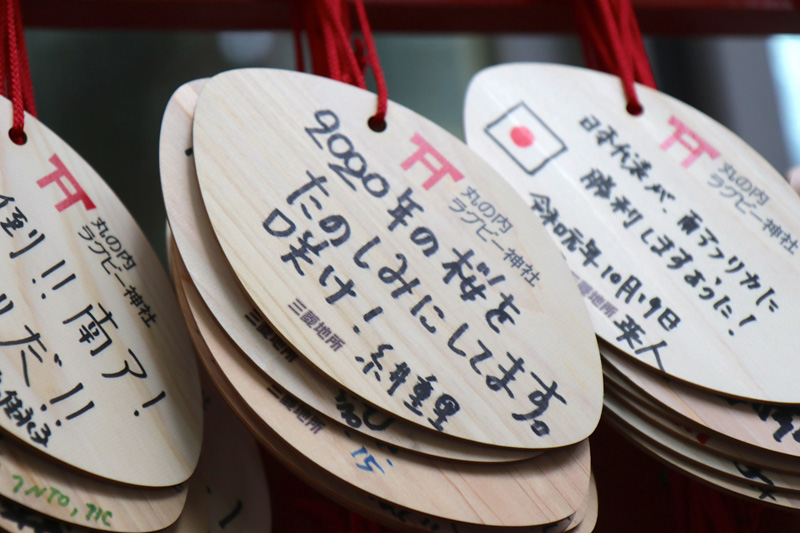 倒!! 南ア!
リだ!!
丸の内
ラグビー神社
JNTO, TIC
2020年の桜を
たのしみにしてます。
咲け!
丸の内
ラグビー神社
三菱地所
三菱地所
三菱地所
15
日本代表が、南アフリカに
勝利しますように!
令和元年10月19日
英人
丸の内
ラグビー神社
三菱地所